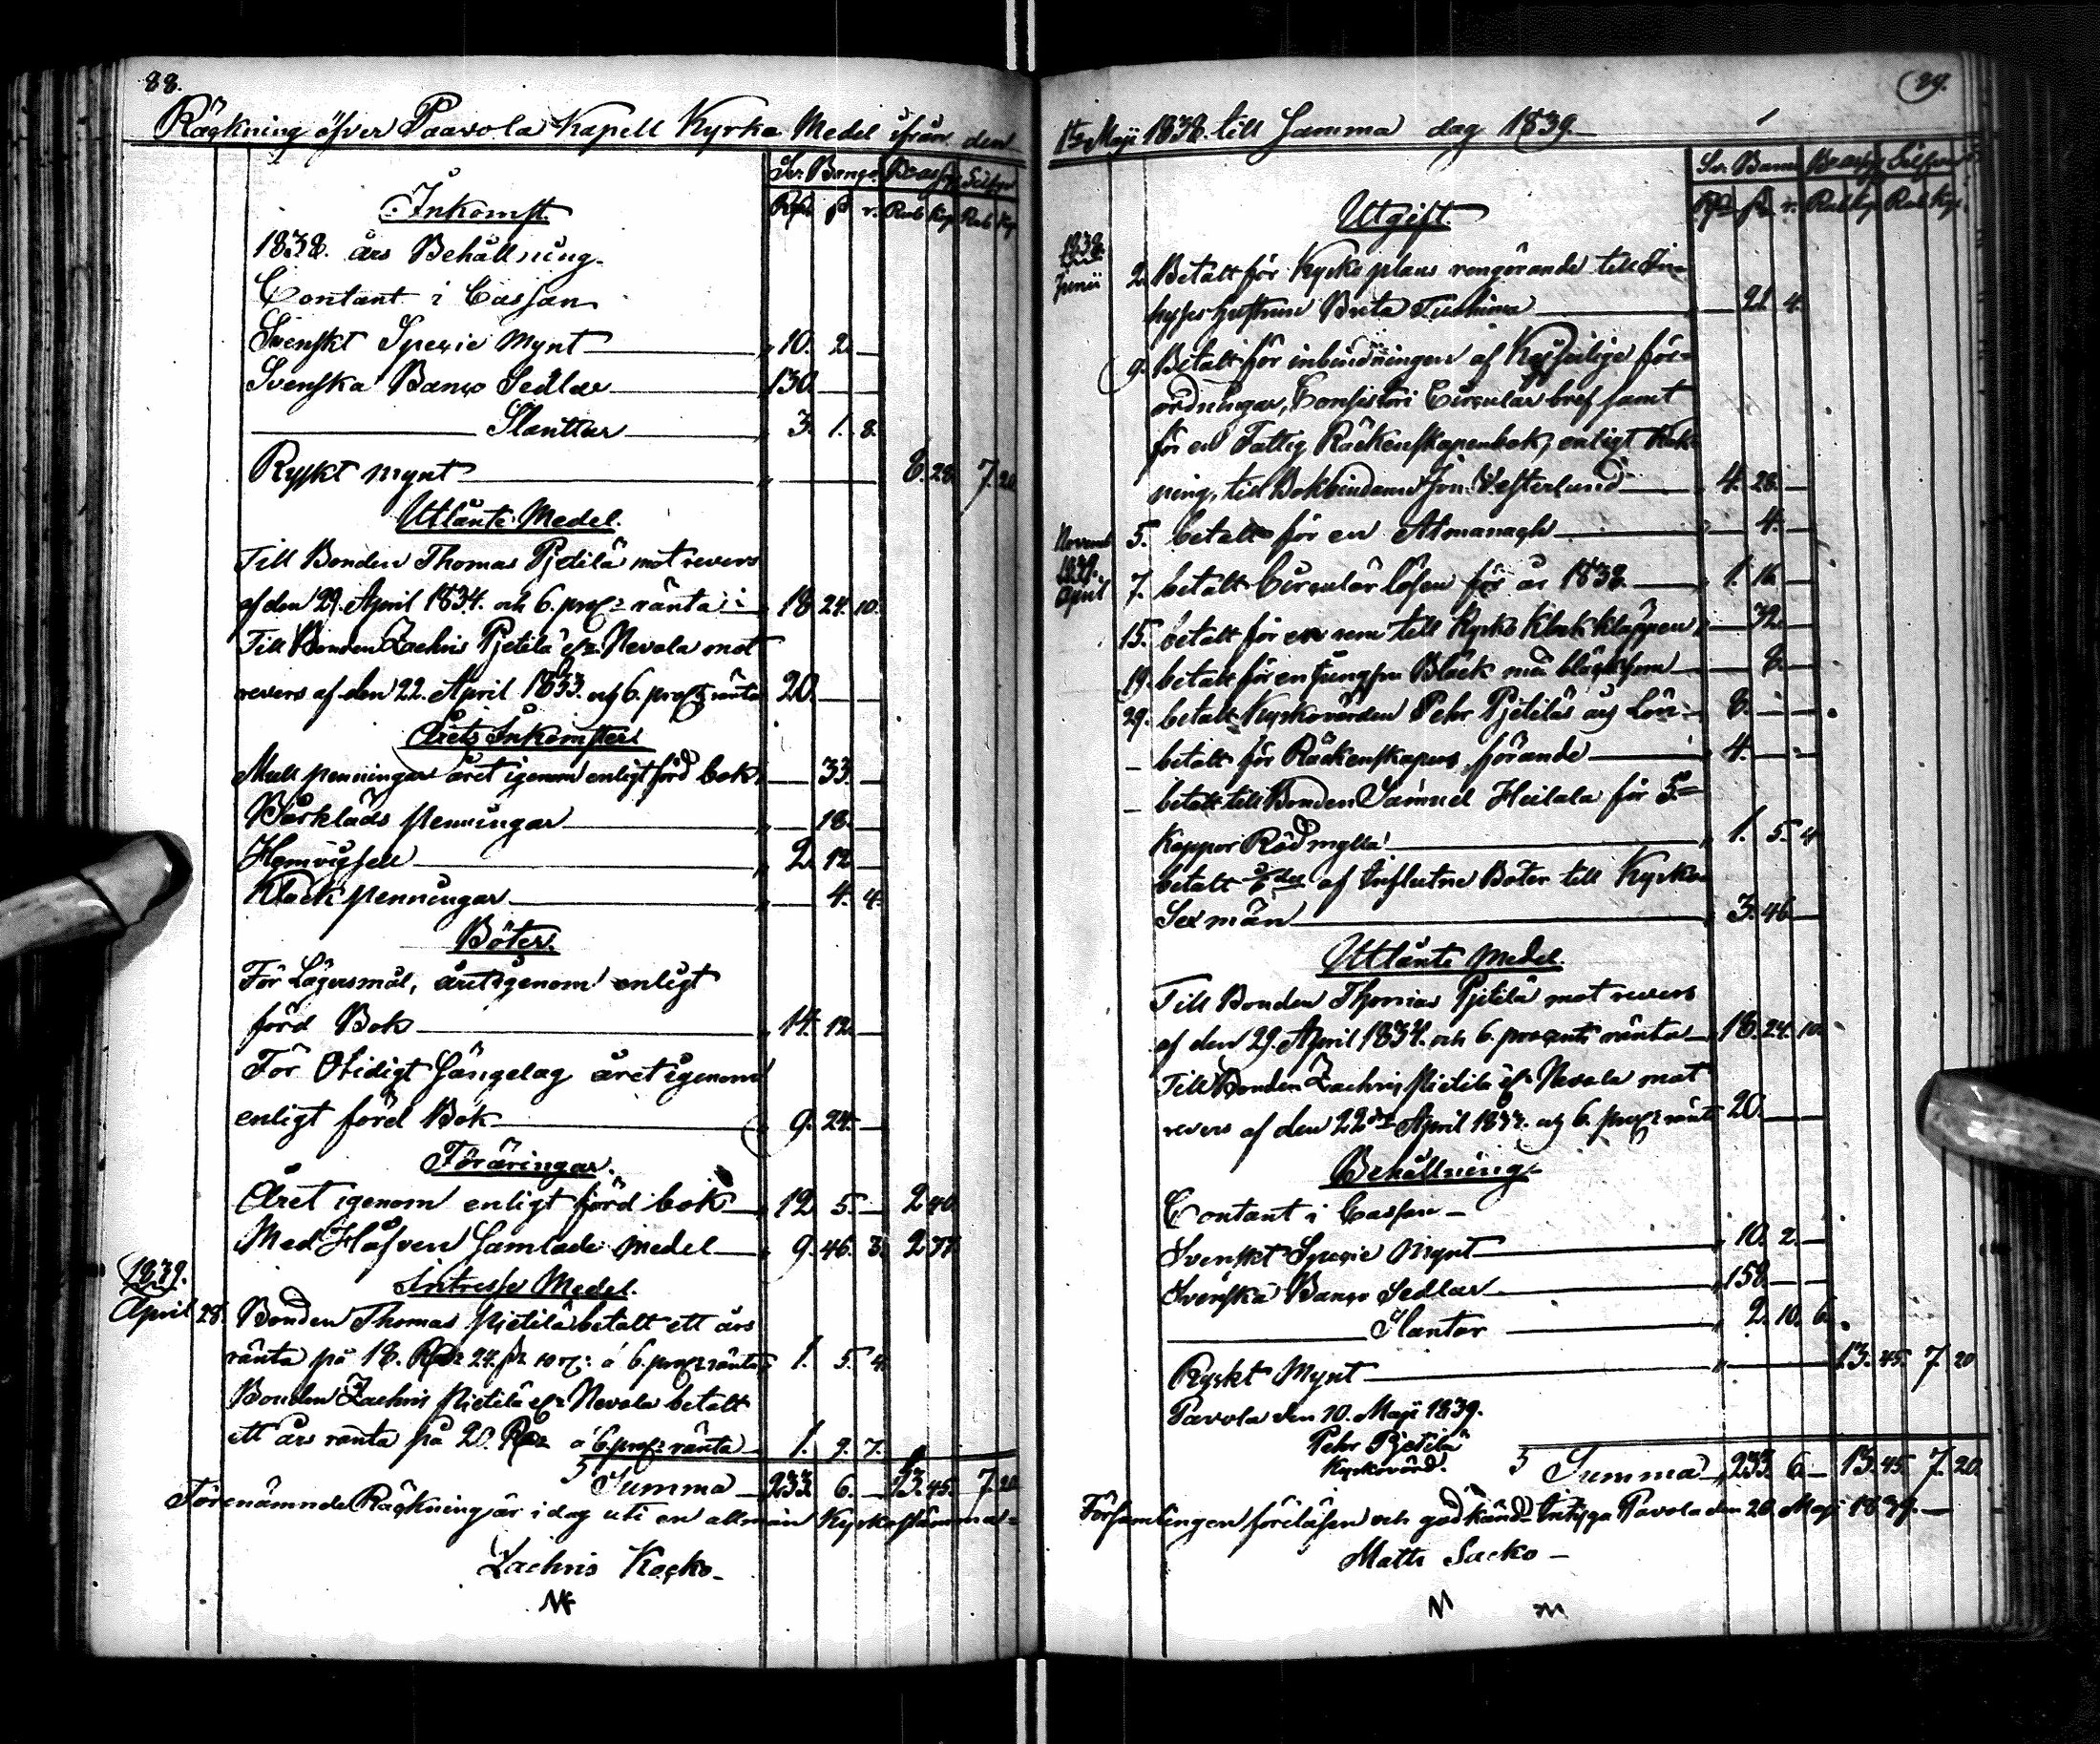 88.
Räckning öfver Paavola Kapell Kyrka Medel ifrån den
Sv. Banco Bco Ass Silfver
Rd. s r. Rub Kop Rub Kop
Inkomst.
1838. års Behållning.
Contant i Cassan
Svenskt Specie Mynt 10. 2.
Svenska Banco Sedlar 130.
Slanttar 3. 1. 8.
Ryskt mynt 8. 28. 7. 20
Utlånte Medel.
Till Bonden Thomas Pjetilä mot revers
af den 29. April 1834. och 6. proc: ränta 18 24. 10.
Till Bonden Zachris Pjetilä el. Nevala mot
revers af den 22. April 1833. och 6. proct ränta 20.
Årets Inkomster.
Mull penningar året igenom enligt förd bok 33.
Bårkläds penningar 18.
Hemvigsell 2. 12
Klock penningar 4. 4.
Böter.
För Lägersmål, året igenom enligt
förd Bok 14. 12.
För Otidigt Sängelag året igenom
enligt förd Bok 9. 24.
Föräringar.
Året igenom enligt förd bok 12 5. 2 40
Med Håfven Samlade medel 9. 46. 3. 2 77
1839. Intresse Medel.
April 28. Bonden Thomas Pietilä betalt ett års
ränta på 18. Rd 24. s 10 r: á 6. proc ränta 1. 5. 4.
Bonden Zachris Pietilä el. Nevala betalt
ett års ränta på 20. Rd á 6. proc: ränta 1. 9. 7.
Summa 233. 6. 13. 45. 7. 20
Förenämnde Räckning är i dag uti en allmän Kyrkostämma
Zachris Kocko

89.
1sta Maji 1838. till Samma dag 1839.
Sv. Banco Bco Ass Silfver
Rd s r. Rub Kop Rub Kop
Utgift.
1838.
Junii 2. Betalt för Kyrko plans rengörande till In-
hyses hustrun Brita 21. 4.
9. Betalt för inbindningen af Kejserlige för-
ordningar, Consistorii Circulär bref samt
för en Fattig Räkenskapenbok, enligt Räk-
ning, till Bokbindaren Joh. Vesterlund 4. 28.
Novemb 5. betalt för en Almanagh 4.
1839.
April 7. betalt Circulär lösen för år 1838. 1. 16.
15. betalt för en rem till Kyrko Klock kläppen 32.
19. betalt för en Jungfru Bläck med bläckhorn 8.
29. betalt Kyrkovärden Pehr Pjetiläs års Lön 8.
betalt för Räkenskapens förande 4.
betalt till Bonden Samuel Heilala för 5.
Kappor Rödmylla 1. 5. 4
betalt 1/6 del af influtne Böter till Kyrko
Sexmän 3. 46.
Utlånte Medel.
Till Bonden Thomas Pjetilä mot revers
af den 29. April 1834. och 6. procents ränta 18. 24. 10.
Till Bonden Zachris Pietilä el. Nevala mot
revers af den 22dra April 1833. och 6. proc: ränta 20.
Behållning.
Contant i Cassan
Svenskt Specie Mynt 10. 2.
Svenska Banco Sedlar 158.
Slantar 2. 10. 6.
Ryskt Mynt 13. 45. 7. 20
Pavola den 10. Maji 1839.
Pehr Pjetilä
Kyrkovärd.
Summa 233. 6. 13. 45. 7. 20.
Församlingen föreläsen och godkänd. Intyga Pavola den 20. Maji 1839.
Matts Sacko